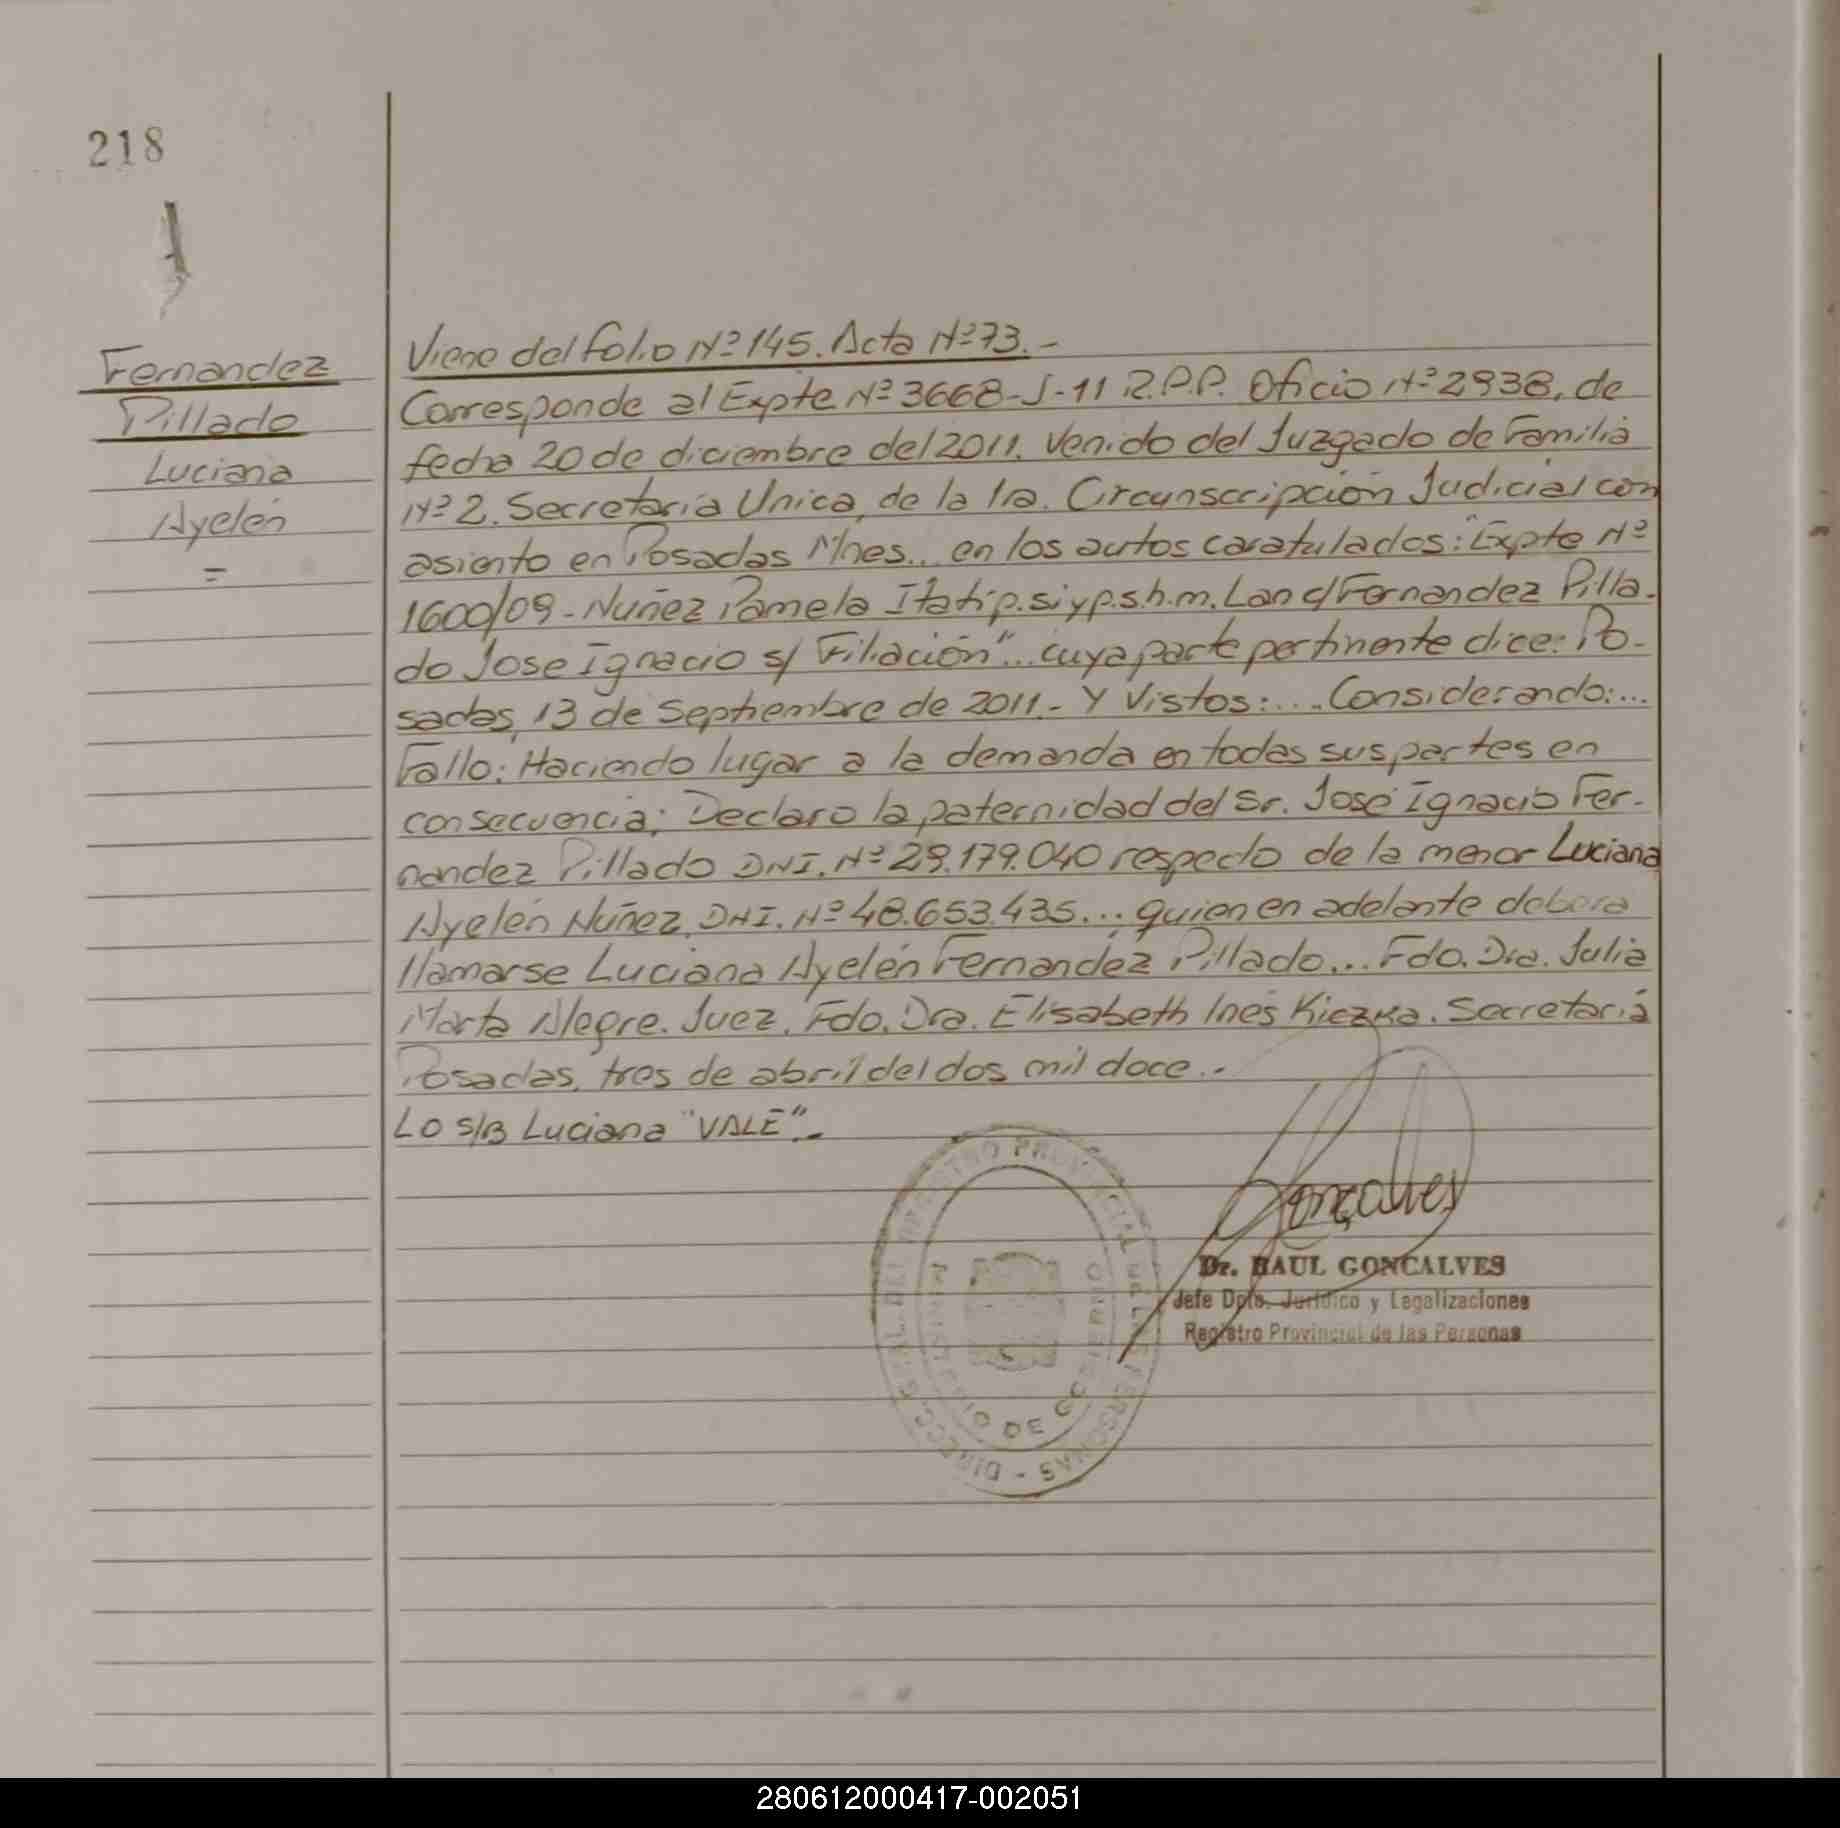 218
Fernandez
Pillado
Luciana
Ayelén
=
Viene del folio Nº 145. Acta Nº 73.-
Corresponde al Expte Nº 3668-J-11 R.P.P. Oficio Nº 2938, de
fecha 20 de diciembre del 2011. Venido del Juzgado de Familia
Nº 2. Secretaria Unica, de la 1ra. Circunscripción Judicial con
asiento en Posadas Mnes... en los autos caratulados: "Expte Nº
1600/09 - Nuñez Pamela Itatí p.si y p.s.h.m. L.a.n c/ Fernandez Pilla-
do Jose Ignacio s/ Filiación"... cuya parte pertinente dice: Po-
sadas, 13 de Septiembre de 2011.- Y Vistos:.... Considerando:...
Fallo: Haciendo lugar a la demanda en todas sus partes en
consecuencia; Declaro la paternidad del Sr. José Ignacio Fer-
nandez Pillado DNI. Nº 29.179.040 respecto de la menor Luciana
Ayelén Nuñez, DNI. Nº 48.653.435... quien en adelante debera
llamarse Luciana Ayelén Fernandez Pillado... Fdo. Dra. Julia
Marta Alegre. Juez. Fdo. Dra. Elisabeth Inés Kiczka. Secretaria
Posadas, tres de abril del dos mil doce.-
Lo s/B Luciana "VALE".-
DIRECC. GRAL. DEL REGISTRO PROVINCIAL DE LAS PERSONAS -
MINISTERIO DE GOBIERNO
Gonçalves
Dr. RAUL GONCALVES
Jefe Dpto. Jurídico y Legalizaciones
Registro Provincial de las Personas
280612000417-002051